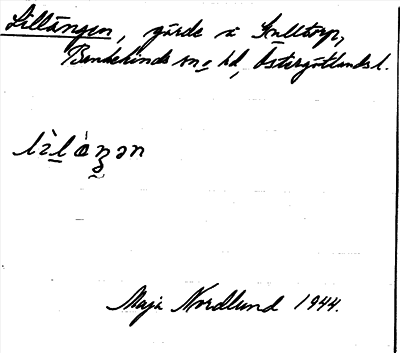 Lillängen, gärde i Kulltorp,
Bankekinds sn o hd, Östergötlands l.
Maja Nordlund 1944.